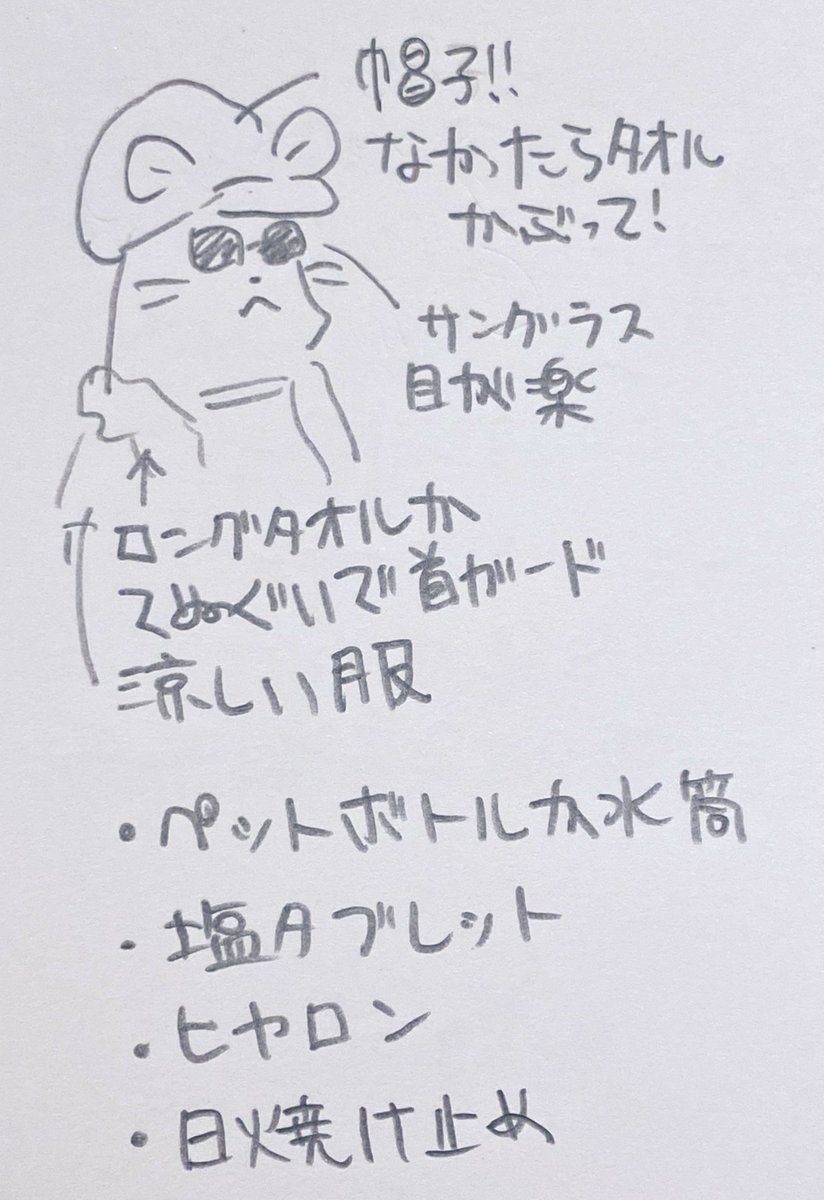 帽子!!
なかったらタオル
かぶって!
サングラス
目が楽
ロングタオルか
てぬぐいで首ガード
涼しい服
・ペットボトルか水筒
・塩タブレット
・ヒヤロン
・日焼け止め